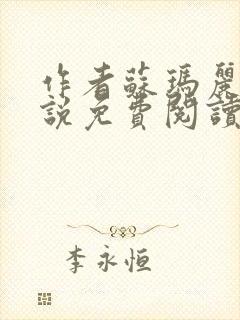 作者蘇瑪麗
說免費閱讀
李永恒